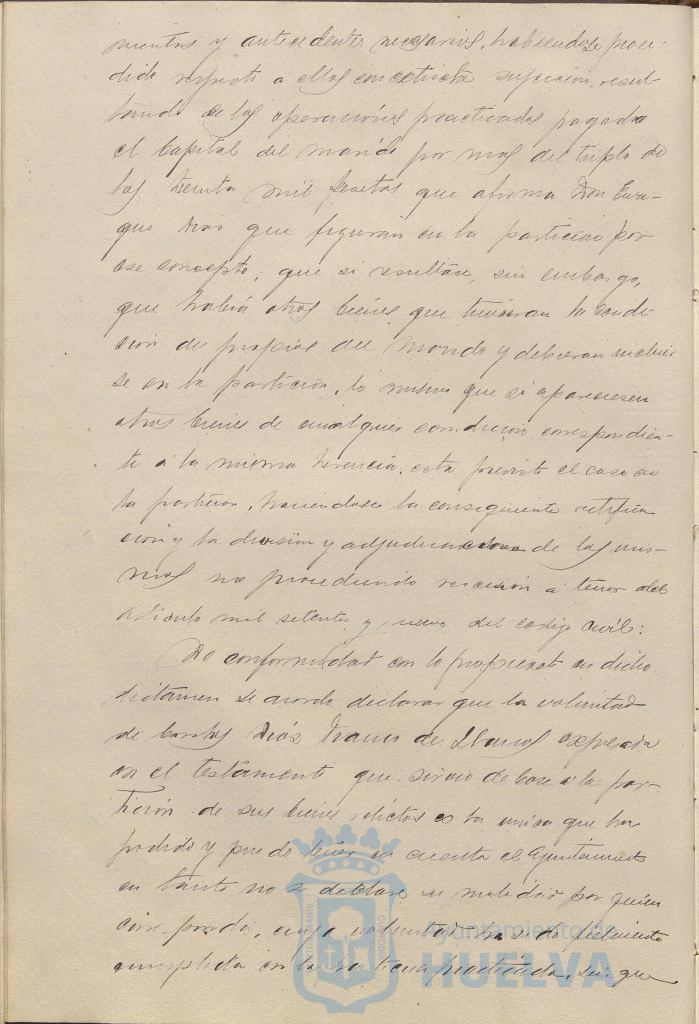 mientos y antecedentes necesarios, habiendose proce-
dido respecto a ellos con estricta sujeción, resul
tando de las operaciones practicadas pagado
el capital del marido por mas del triplo de
las treinta mil pesetas que afirma Don Enri-
que Dias que figuran en la particion por
ese concepto; que si resultase, sin embargo,
que habia otros bienes que tuvieran la condi
cion de propios del marido y debieran incluir
se en la particion, lo mismo que si apareciesen
otros bienes de cualquier condicion correspondien-
te á la misma herencia, está previsto el caso en
la particion, haciendose la consiguiente rectifica
cion y la division y adjudicaciones de los mis-
mos no procediendo rescision á tenor del
articulo mil setenta y nueve del codigo civil:
De conformidad con lo propuesto en dicho
dictamen se acordó declarar que la voluntad
de Diáz Franco de Llanos expresada
en el testamento que sirvio de base á la par-
ticion de sus bienes relictos es la unica que ha
podido y puede tener en cuenta el Ayuntamiento
en tanto no se declare su nulidad por quien
corresponda, cuya voluntad ha sido fielmente
cumplida en la particion practicada, sin que
Ayuntamiento de
HUELVA